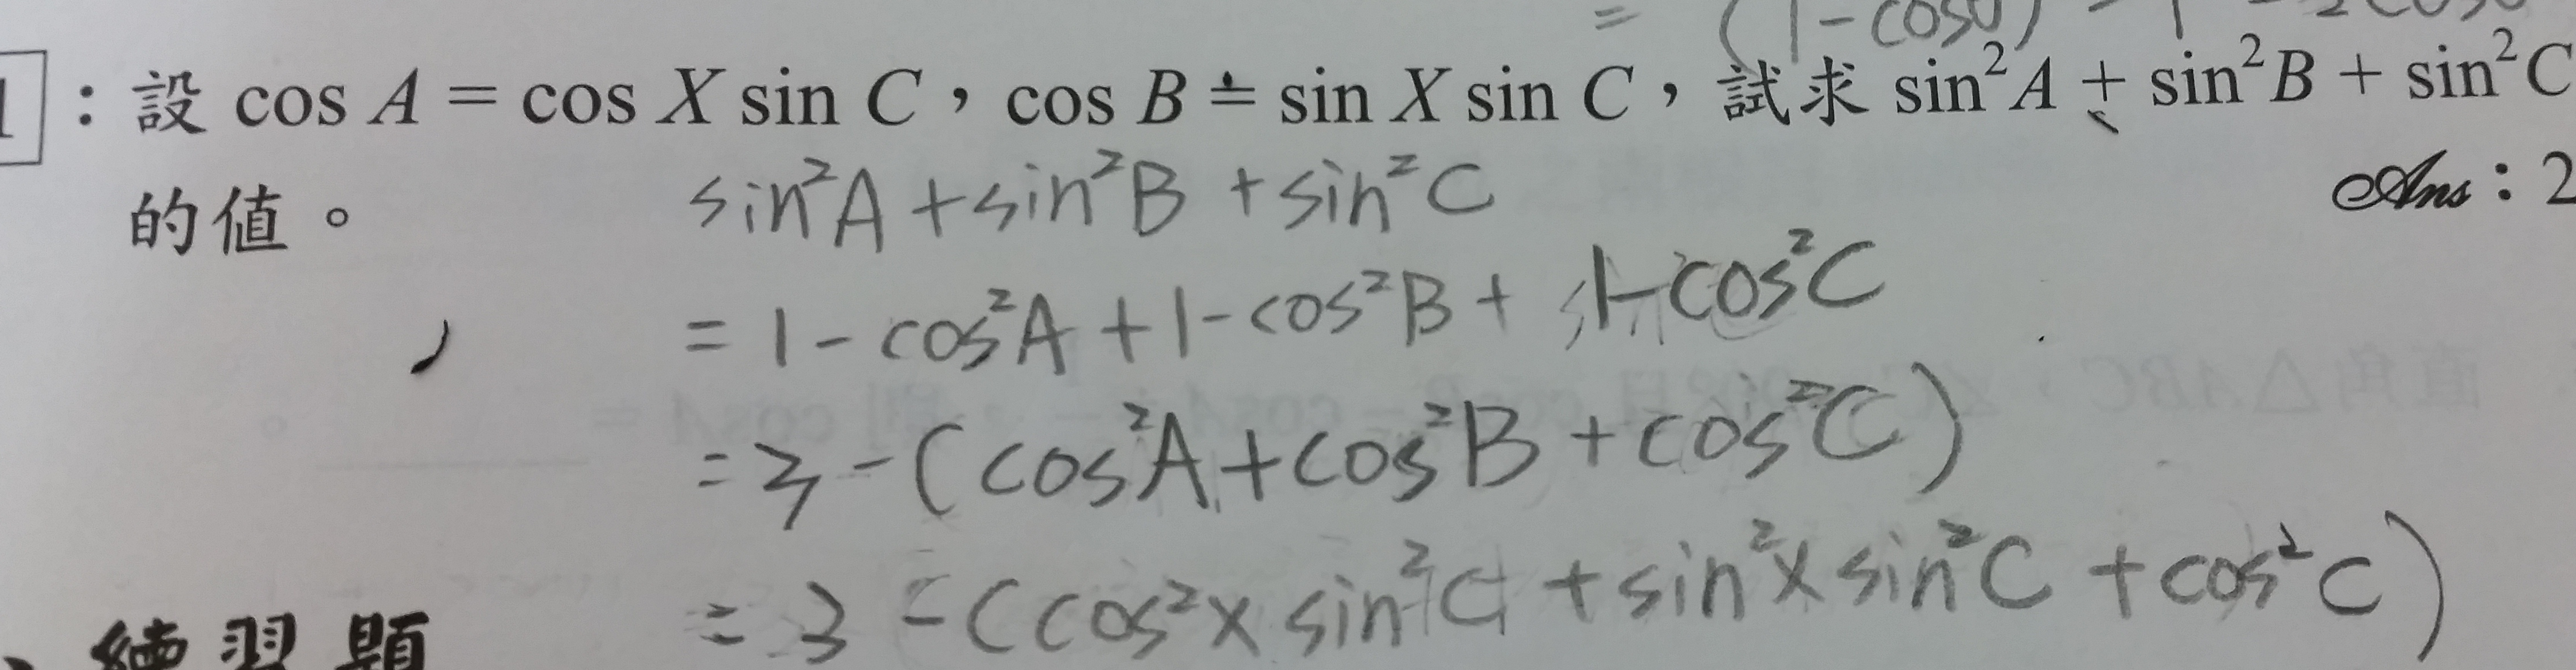 = (1-cosθ)
1：設 cos A = cos X sin C，cos B = sin X sin C，試求 sin²A + sin²B + sin²C
的值。 Ans：2
sin²A + sin²B + sin²C
= 1 - cos²A + 1 - cos²B + 1 - cos²C
= 3 - (cos²A + cos²B + cos²C)
= 3 - (cos²x sin²C + sin²x sin²C + cos²C)
練習題